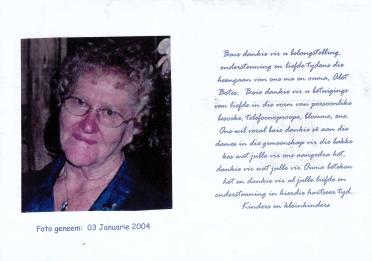 Baie dankie vir u belangstelling,
ondersteuning en liefde tydens die
heengaan van ons ma en ouma, Abst
Botes. Baie dankie vir u betuigings
van liefde in die vorm van persoonlike
besoeke, telefoonoproepe, blomme, enz.
Ons wil veral baie dankie sê aan die
dames in die gemeenskap vir die bakke
kos wat julle vir ons aangedra het,
dankie vir wat julle vir Ouma beteken
het en dankie vir al julle liefde en
ondersteuning in hierdie hartseer tyd..
Kinders en kleinkinders
Foto geneem: 03 Januarie 2004